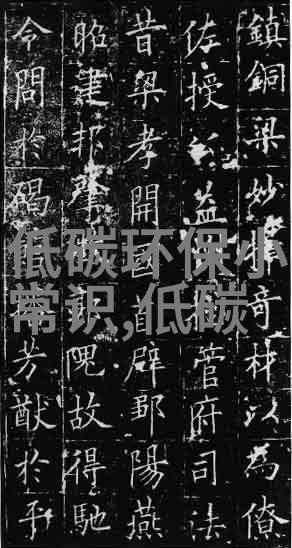 鎮銅梁妙奇材以為僚
佐授益管府司法
昔梁孝開國首辟鄒陽燕
昭建邦肇隗故得馳
令問於碣芳猷於平
低碳环保小
常识,低碳